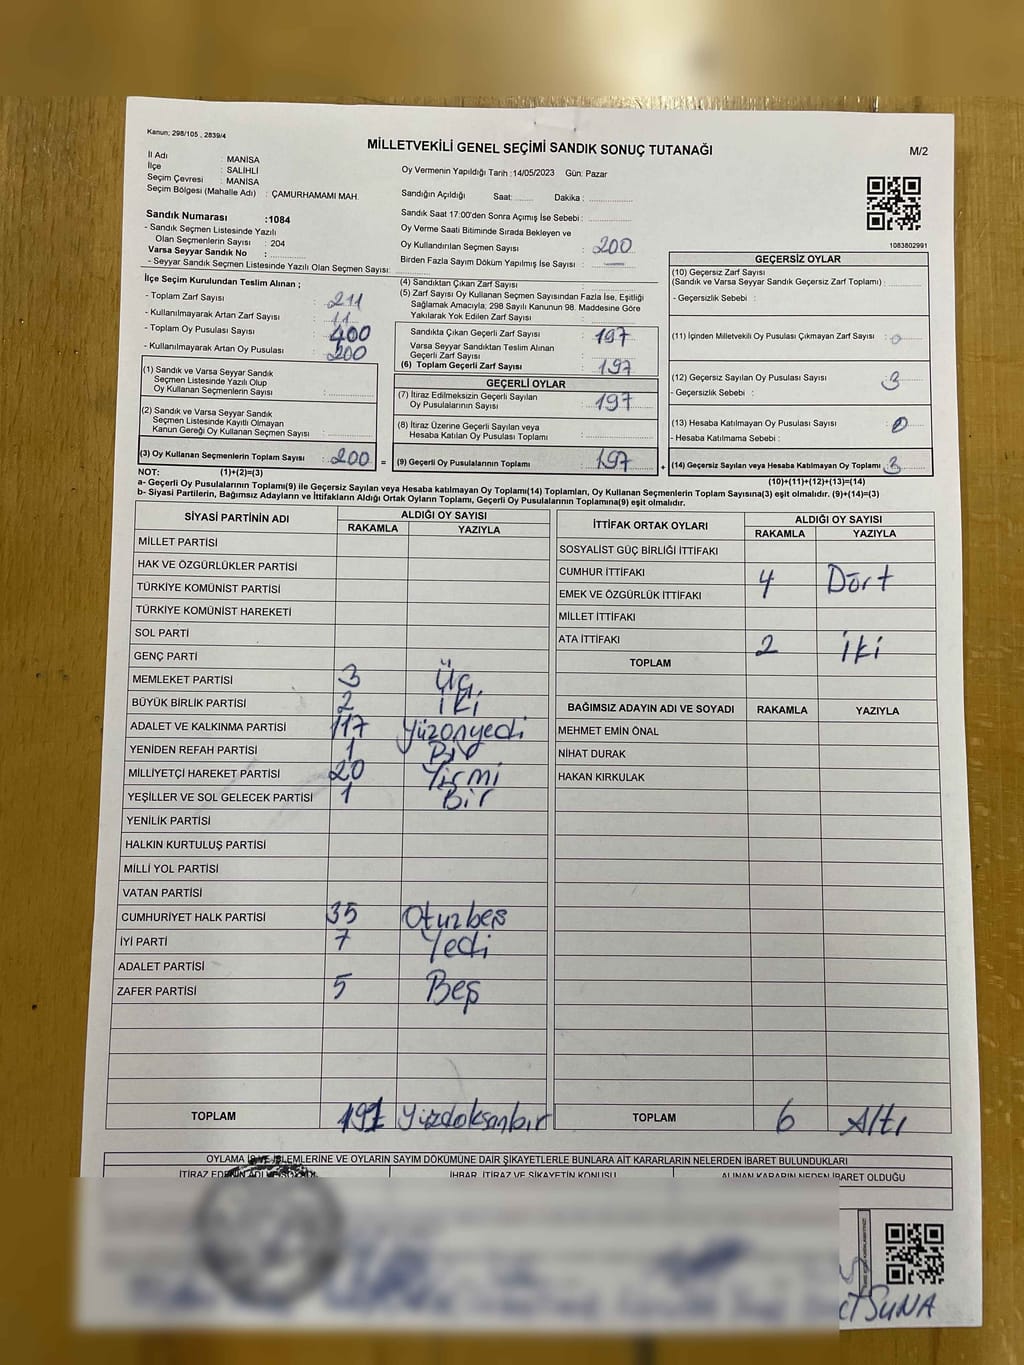 Kanun; 298/105 , 2839/4
MİLLETVEKİLİ GENEL SEÇİMİ SANDIK SONUÇ TUTANAĞI
M/2
İl Adı : MANİSA
İlçe : SALİHLİ
Seçim Çevresi : MANİSA
Seçim Bölgesi (Mahalle Adı) : ÇAMURHAMAMI MAH.
Oy Vermenin Yapıldığı Tarih :14/05/2023 Gün: Pazar
Sandığın Açıldığı Saat: Dakika :
Sandık Saat 17:00'den Sonra Açımış İse Sebebi :
Sandık Numarası :1084
- Sandık Seçmen Listesinde Yazılı
Olan Seçmenlerin Sayısı : 204
Varsa Seyyar Sandık No :
- Seyyar Sandık Seçmen Listesinde Yazılı Olan Seçmen Sayısı:
Oy Verme Saati Bitiminde Sırada Bekleyen ve
Oy Kullandırılan Seçmen Sayısı : 200
Birden Fazla Sayım Döküm Yapılmış İse Sayısı : —
1083802991
İlçe Seçim Kurulundan Teslim Alınan ;
- Toplam Zarf Sayısı : 211
- Kullanılmayarak Artan Zarf Sayısı : 11
- Toplam Oy Pusulası Sayısı : 400
- Kullanılmayarak Artan Oy Pusulası : 200
(1) Sandık ve Varsa Seyyar Sandık
Seçmen Listesinde Yazılı Olup
Oy Kullanan Seçmenlerin Sayısı :
(2) Sandık ve Varsa Seyyar Sandık
Seçmen Listesinde Kayıtlı Olmayan
Kanun Gereği Oy Kullanan Seçmen Sayısı :
(3) Oy Kullanan Seçmenlerin Toplam Sayısı : 200 =
(4) Sandıktan Çıkan Zarf Sayısı :
(5) Zarf Sayısı Oy Kullanan Seçmen Sayısından Fazla İse, Eşitliği
Sağlamak Amacıyla; 298 Sayılı Kanunun 98. Maddesine Göre
Yakılarak Yok Edilen Zarf Sayısı :
Sandıkta Çıkan Geçerli Zarf Sayısı : 197
Varsa Seyyar Sandıktan Teslim Alınan
Geçerli Zarf Sayısı :
(6) Toplam Geçerli Zarf Sayısı : 197
GEÇERLİ OYLAR
(7) İtiraz Edilmeksizin Geçerli Sayılan
Oy Pusulalarının Sayısı : 197
(8) İtiraz Üzerine Geçerli Sayılan veya
Hesaba Katılan Oy Pusulası Toplamı :
(9) Geçerli Oy Pusulalarının Toplamı : 197 +
GEÇERSİZ OYLAR
(10) Geçersiz Zarf Sayısı
(Sandık ve Varsa Seyyar Sandık Geçersiz Zarf Toplamı) :
- Geçersizlik Sebebi :
(11) İçinden Milletvekili Oy Pusulası Çıkmayan Zarf Sayısı : 0
(12) Geçersiz Sayılan Oy Pusulası Sayısı : 3
- Geçersizlik Sebebi :
(13) Hesaba Katılmayan Oy Pusulası Sayısı : 0
- Hesaba Katılmama Sebebi :
(14) Geçersiz Sayılan veya Hesaba Katılmayan Oy Toplamı : 3
NOT: (1)+(2)=(3)
(10)+(11)+(12)+(13)=(14)
a- Geçerli Oy Pusulaları Toplamı(9) ile Geçersiz Sayılan veya Hesaba katılmayan Oy Toplamı(14) Toplamları, Oy Kullanan Seçmenlerin Toplam Sayısına(3) eşit olmalıdır. (9)+(14)=(3)
b- Siyasi Partilerin, Bağımsız Adayların ve İttifakların Aldığı Ortak Oyların Toplamı, Geçerli Oy Pusulalarının Toplamına(9) eşit olmalıdır.
SİYASİ PARTİNİN ADI ALDIĞI OY SAYISI
RAKAMLA YAZIYLA
MİLLET PARTİSİ
HAK VE ÖZGÜRLÜKLER PARTİSİ
TÜRKİYE KOMÜNİST PARTİSİ
TÜRKİYE KOMÜNİST HAREKETİ
SOL PARTİ
GENÇ PARTİ
MEMLEKET PARTİSİ 3 Üç
BÜYÜK BİRLİK PARTİSİ 2 İki
ADALET VE KALKINMA PARTİSİ 117 Yüzonyedi
YENİDEN REFAH PARTİSİ 1 Bir
MİLLİYETÇİ HAREKET PARTİSİ 20 Yirmi
YEŞİLLER VE SOL GELECEK PARTİSİ 1 Bir
YENİLİK PARTİSİ
HALKIN KURTULUŞ PARTİSİ
MİLLİ YOL PARTİSİ
VATAN PARTİSİ
CUMHURİYET HALK PARTİSİ 35 Otuzbeş
İYİ PARTİ 7 Yedi
ADALET PARTİSİ
ZAFER PARTİSİ 5 Beş
TOPLAM 191 Yüzdoksanbir
İTTİFAK ORTAK OYLARI ALDIĞI OY SAYISI
RAKAMLA YAZIYLA
SOSYALİST GÜÇ BİRLİĞİ İTTİFAKI
CUMHUR İTTİFAKI 4 Dört
EMEK VE ÖZGÜRLÜK İTTİFAKI
MİLLET İTTİFAKI
ATA İTTİFAKI 2 İki
TOPLAM
BAĞIMSIZ ADAYIN ADI VE SOYADI RAKAMLA YAZIYLA
MEHMET EMİN ÖNAL
NİHAT DURAK
HAKAN KIRKULAK
TOPLAM 6 Altı
OYLAMA İŞ VE İŞLEMLERİNE VE OYLARIN SAYIM DÖKÜMÜNE DAİR ŞİKAYETLERLE BUNLARA AİT KARARLARIN NELERDEN İBARET BULUNDUKLARI
İTİRAZ EDENİN ADI VE SOYADI İHBAR, İTİRAZ VE ŞİKAYETİN KONUSU ALINAN KARARIN NEDEN İBARET OLDUĞU
SUNA